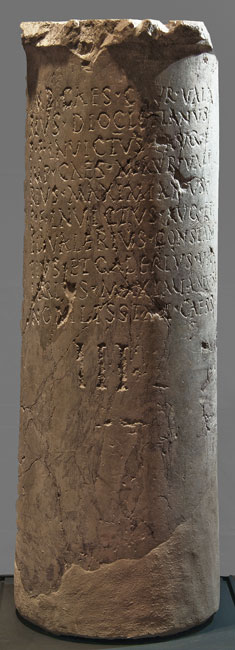 CAES · C · AVR · VAL
RIVS DIOCLETIANVS
INVICTVS AVG
CAES · M · AVR · VAL
RIVS · MAXIMIANVS
INVICTVS AVG ET
VALERIVS · CONSTAN
TIVS ET GALERIVS · VA
MAXIMIANVS
NOBILISSIMI CAES
III